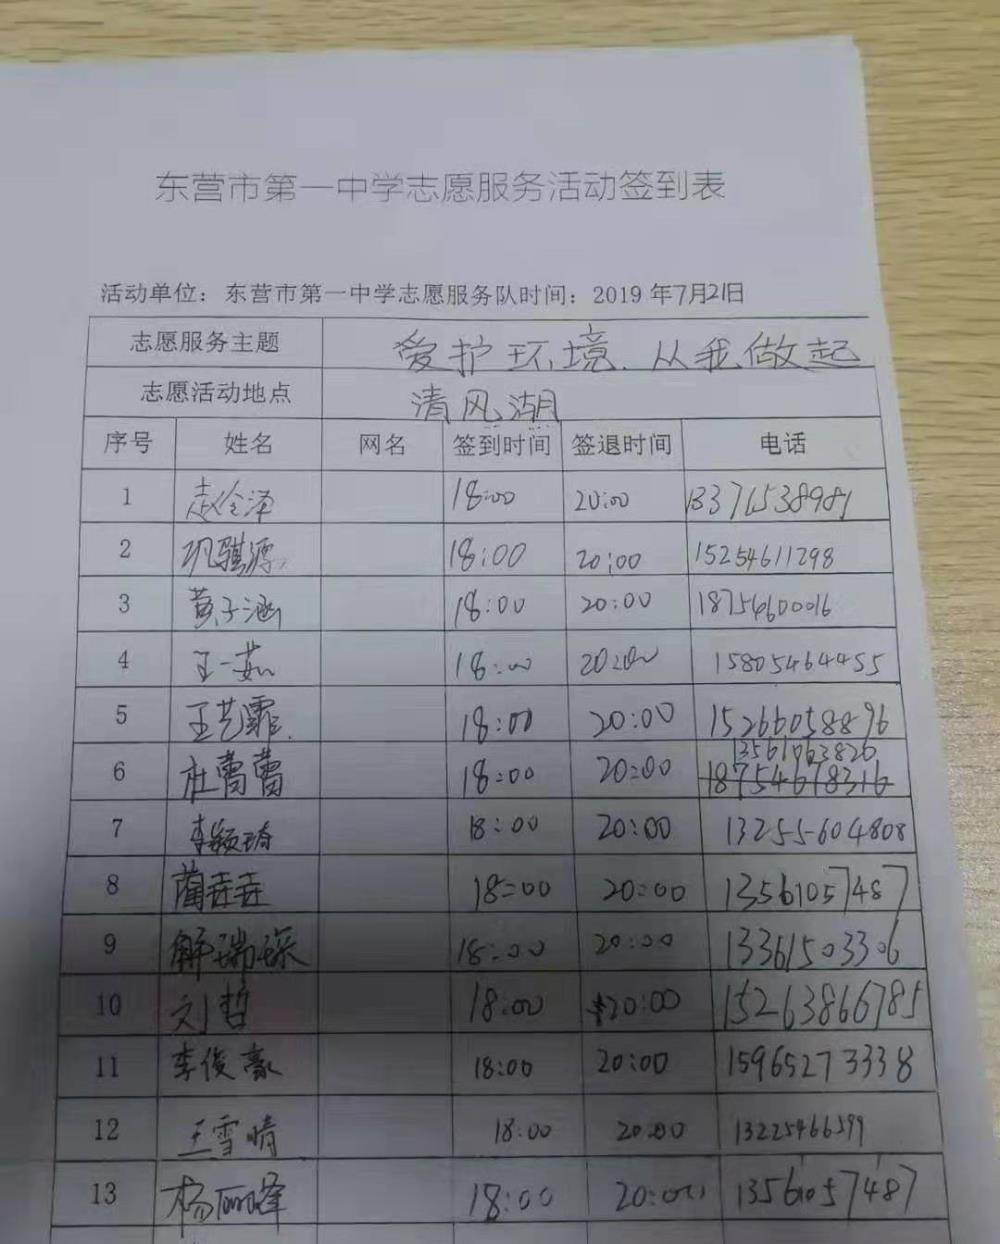 东营市第一中学志愿服务活动签到表
活动单位：东营市第一中学志愿服务队时间：2019年7月21日
志愿服务主题 爱护环境.从我做起
志愿活动地点 清风湖
序号 姓名 网名 签到时间 签退时间 电话
1 赵伶泽 18:00 20:00 13371538981
2 巩骐源 18:00 20:00 15254611298
3 黄子涵 18:00 20:00 18754600016
4 王一茹 18:00 20:00 15805464455
5 王艺霏 18:00 20:00 15266058896
13561063826
6 杜蕾蕾 18:00 20:00 18754678316
7 李颖琦 18:00 20:00 13255604808
8 蔺垚垚 18:00 20:00 13561057487
9 解瑞琛 18:00 20:00 13361503306
10 刘哲 18:00 20:00 15263866785
11 李俊豪 18:00 20:00 15965273338
12 王雪晴 18:00 20:00 13225466599
13 杨丽峰 18:00 20:00 13561057487